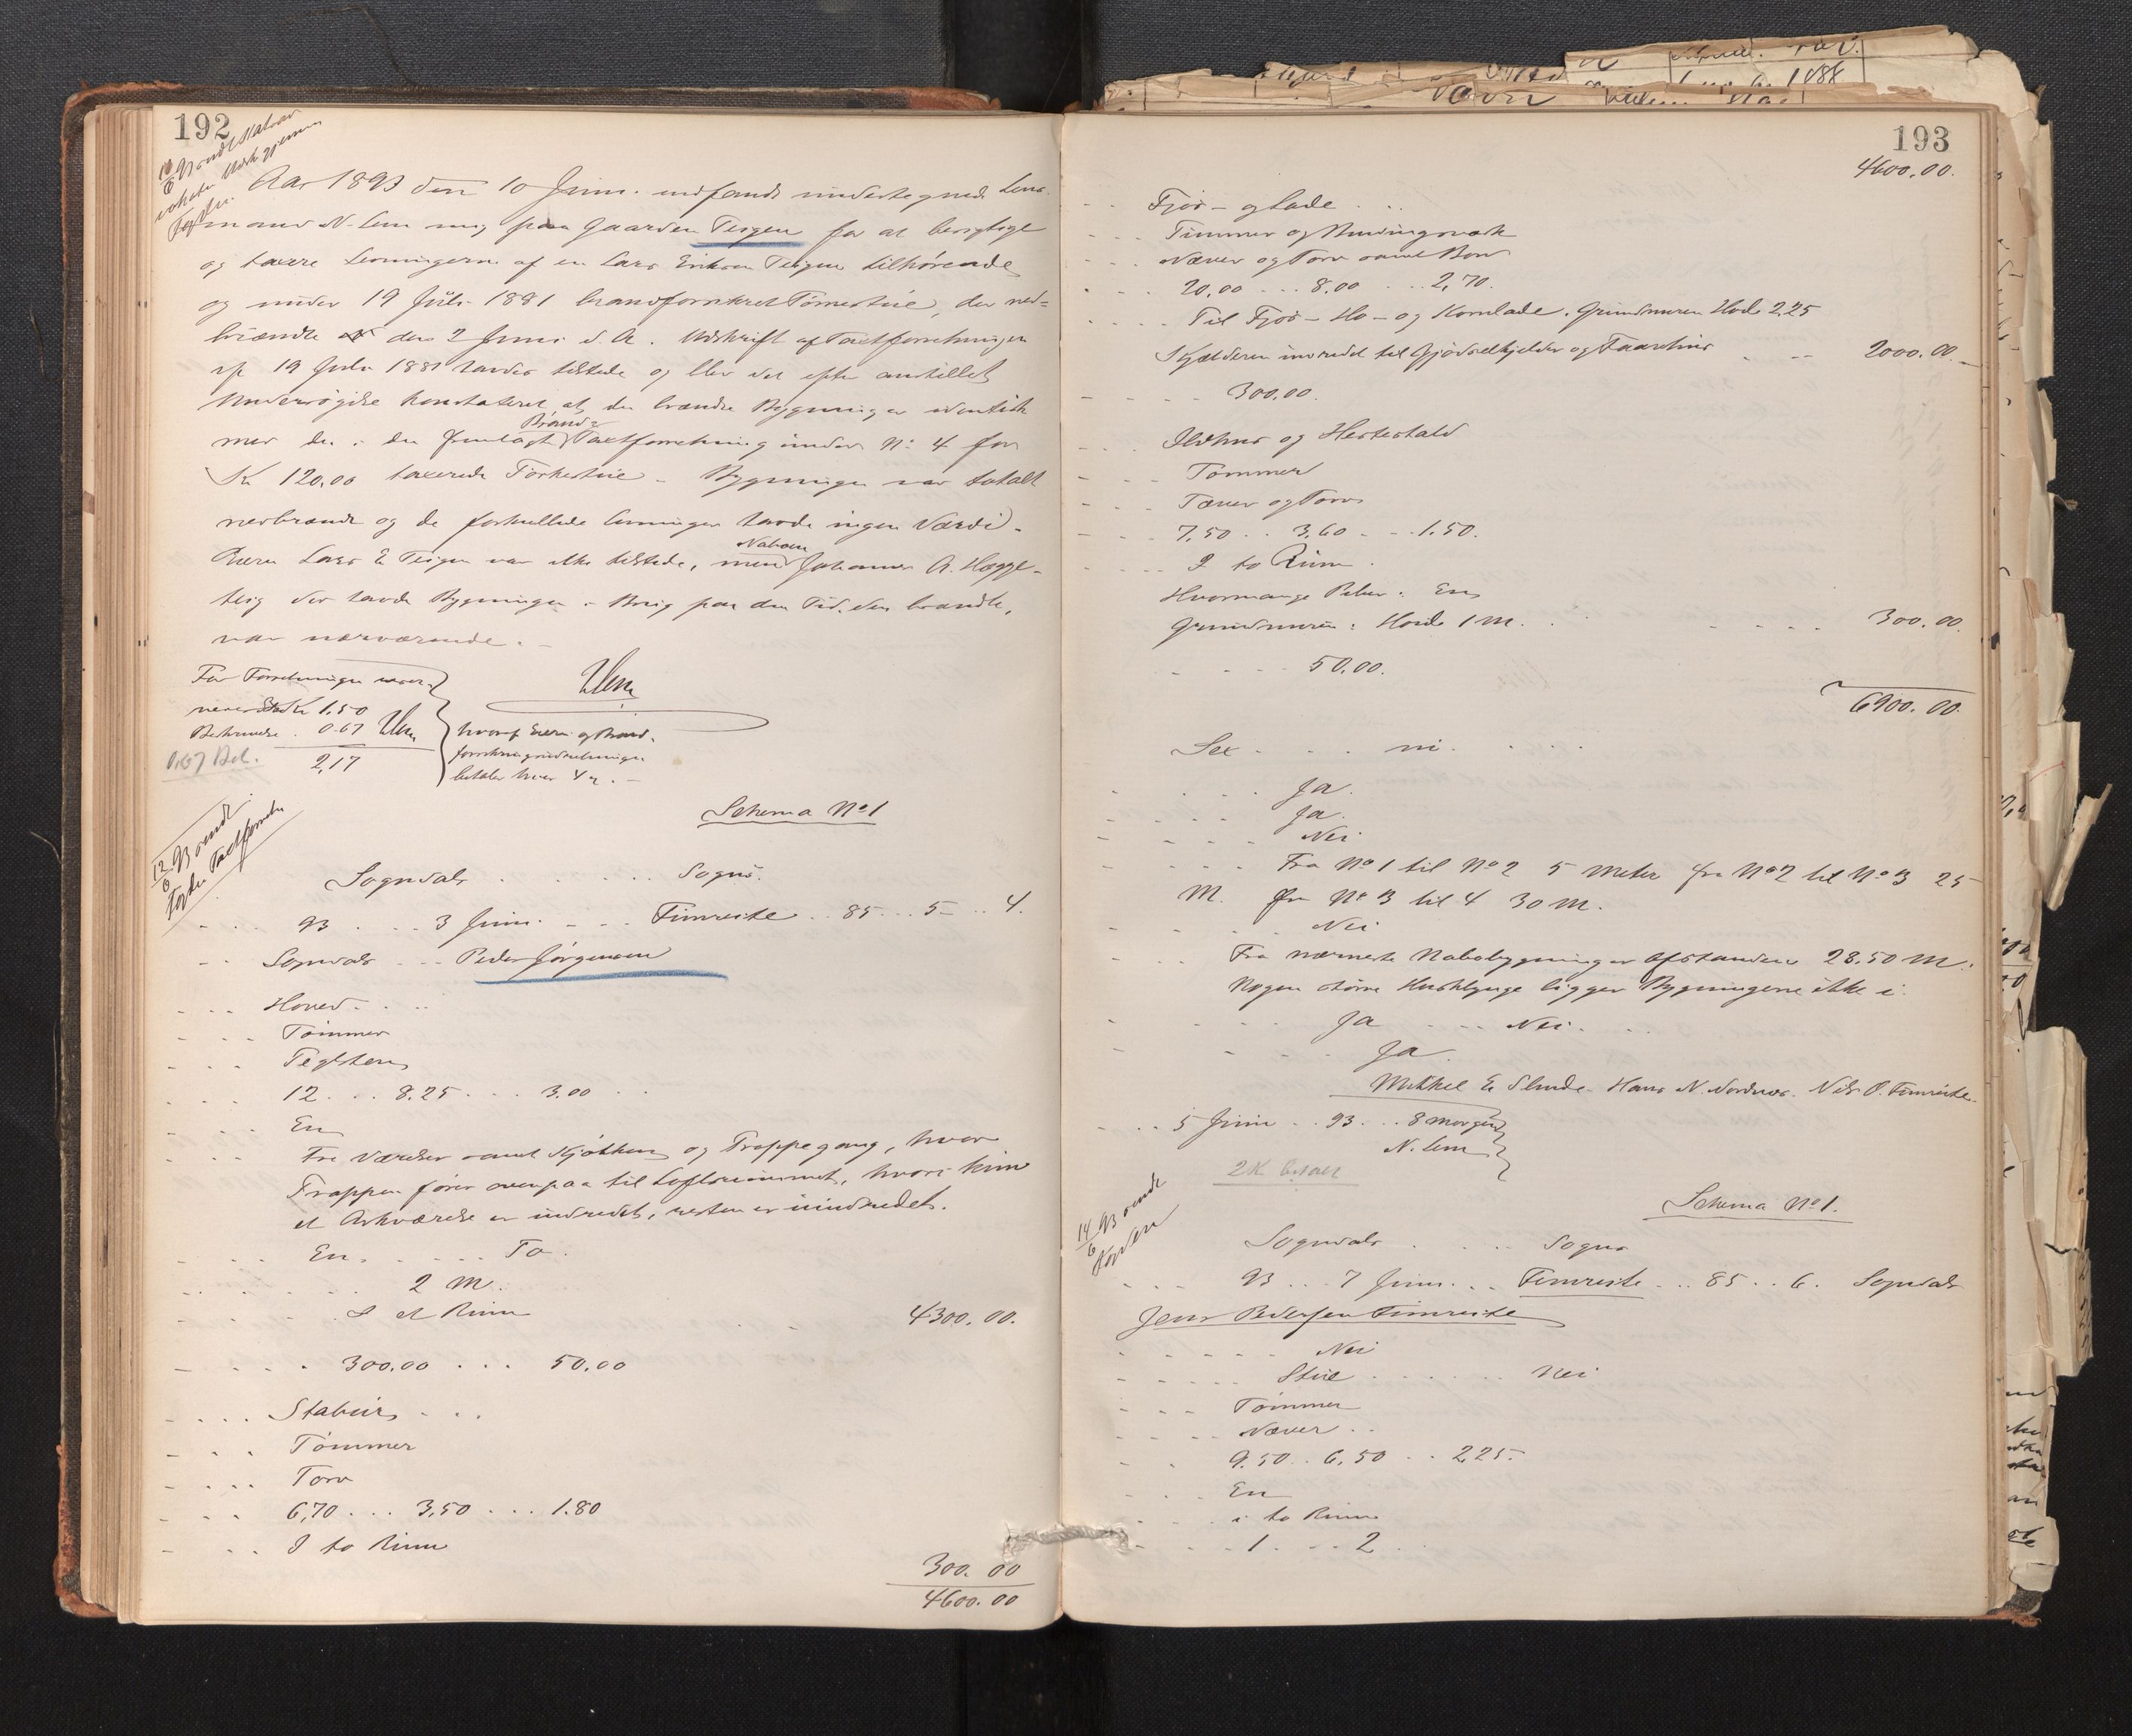 192
Aar 1893 den 10 Juni indfandt undertegnede Lens-
mand N. Lem mig paa Gaarden Teigen for at besigtige
og taxere Levningerne af en Lars Eriksen Teigen tilhørende
og under 19 Juli 1881 brandforsikret Tørrestue, der ned-
brændte den 2 Juni d. A. Udskrift af Taxtforretningen
af 19 Juli 1881 havdes tilstede og blev det efter anstillet
Undersøgelse konstateret, at den brændte Bygning er identisk
med den i den fremlagte Brand- Taxtforretning under No 4 for
Kr 120,00 taxerede Tørkestue - Bygningen var totalt
nedbrændt og de forkullede Levninger havde ingen Værdi.
Eieren Lars E Teigen var ikke tilstede, men Naboen Johannes A. Hægge-
der havde Bygningen i Brug paa den Tid, den brændte,
var nærværende.
For Forretningen
1.50
0.67
2,17
Lem
hvoraf Eieren og Brand-
forsikringsindretningen
betaler hver ½.
Schema No 1
Sogndals . . . Sogns.
93 . . . 3 Juni . . . Fimreite . . 85 . . . 5 . . 4.
Sogndals . . . Peder Jørgensen
Hoved . . .
Tømmer
Teglsten
12 . . . 8.25 . . . 3.00 . .
En
Tre Værelser samt Kjøkken og Trappegang, hvor
Trappen fører ovenpaa til Loftsrummet, hvori kun
et Arkværelse er indredet, resten er uindredet.
En . . . . To.
2 M.
I et Rum
4300.00.
300.00 . . . 50.00
Stabur . . .
Tømmer
Torv
6,70 . . . 3,50 . . . 1.80
I to Rum
300.00
4600.00
193
4600.00.
Fjøs- og Lade . .
Tømmer og Bindingsværk
Næver og Torv samt Bord
20,00 . . . 8.00 . . . 2,70.
Til Fjøs- Hø- og Kornlade. Grundmuren Høide 2,25
Kjælderen indredet til Gjødselkjelder og Faarehus . . . 2000.00.
300.00.
Ildhus og Hestestald
Tømmer
Næver og Torv
7,50 . . 3,60 . . . 1.50.
I to Rum.
Hvormange Piber: En
Grundmuren: Høide 1 M. . . . 300.00.
50.00.
6900.00.
Sex . . . . ni . . .
Ja.
Ja.
Nei
Fra No 1 til No 2 5 Meter fra No 2 til No 3 25
M. fra No 3 til 4 30 M.
Nei
Fra nærmeste Nabobygninger Afstanden 28.50 M.
Nogen større Husklynge ligger Bygningerne ikke i.
Ja . . . Nei . . .
Ja.
Mikkel E Slinde. Hans N. Nordnes. Nils O. Fimreite.
5 Juni . . 93 . . . 8 morgen
N. Lem
2 K betalt
Schema No 1.
Sogndals . . . Sogns
93 . . . 7 Juni . . . Fimreite . . . 85 . . 6. Sogndals
Jens Pedersen Fimreite
Nei
Stue . . . . . . Nei
Tømmer
Næver . .
9.50 . . 6,50 . . . 2,25.
En
i to Rum
1 . . . 2